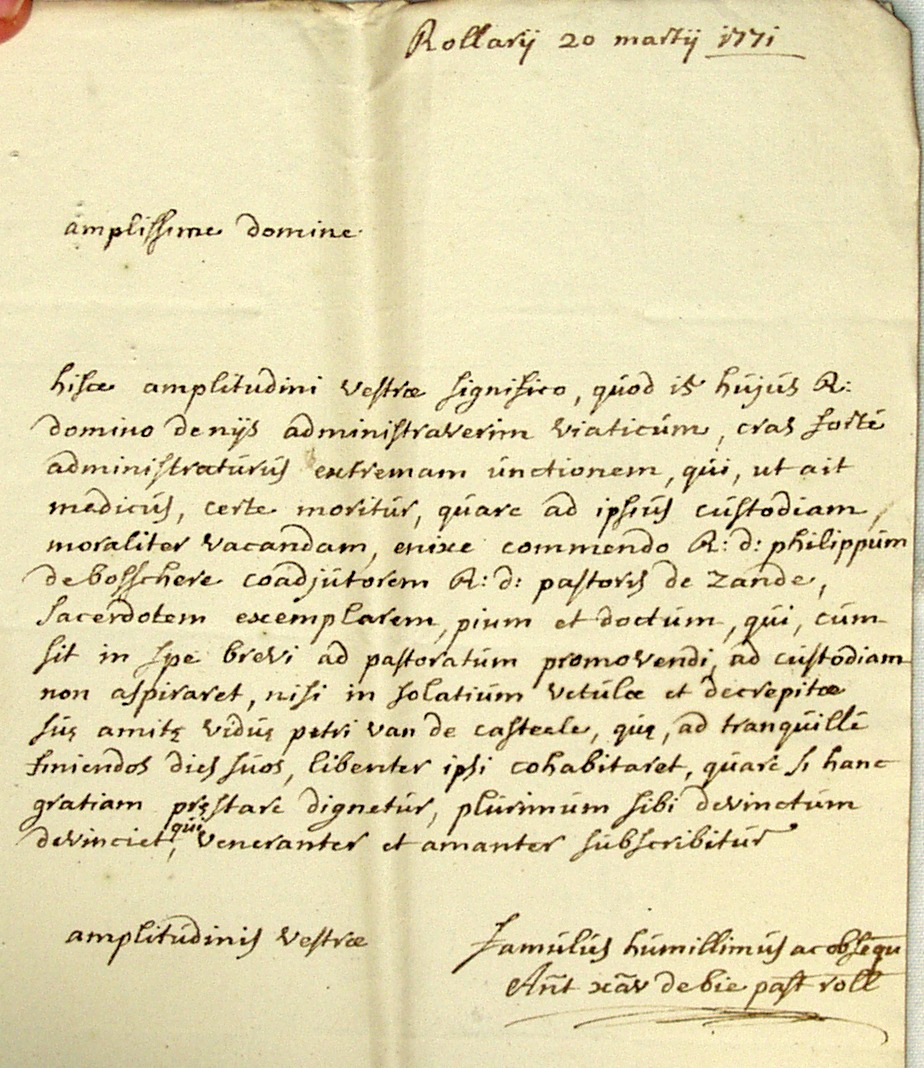 Rollarij 20 martij 1771
amplissime domine
hisce amplitudini vestræ significo, quod 18 hujus R:
domino denijs administraverim viaticum, cras forte
administraturus extremam unctionem, qui, ut ait
medicus, certe moritur, quare ad ipsius custodiam,
moraliter vacandam, enixe commendo R: d: philippum
debosschere coadjutorem R: d: pastoris de zande,
sacerdotem exemplarem, pium et doctum, qui, cum
sit in spe brevi ad pastoratum promovendi, ad custodiam
non aspiraret, nisi in solatium vetulæ et decrepitæ
suę amitę viduę petri van de casteele, quę, ad tranquille
finiendos dies suos, libenter ipsi cohabitaret, quare si hanc
gratiam pręstare dignetur, plurimum sibi devinctum
devinciet, qui veneranter et amanter subscribitur
amplitudinis vestræ
famulus humillimus ac obsequ
Ant xav debie past roll